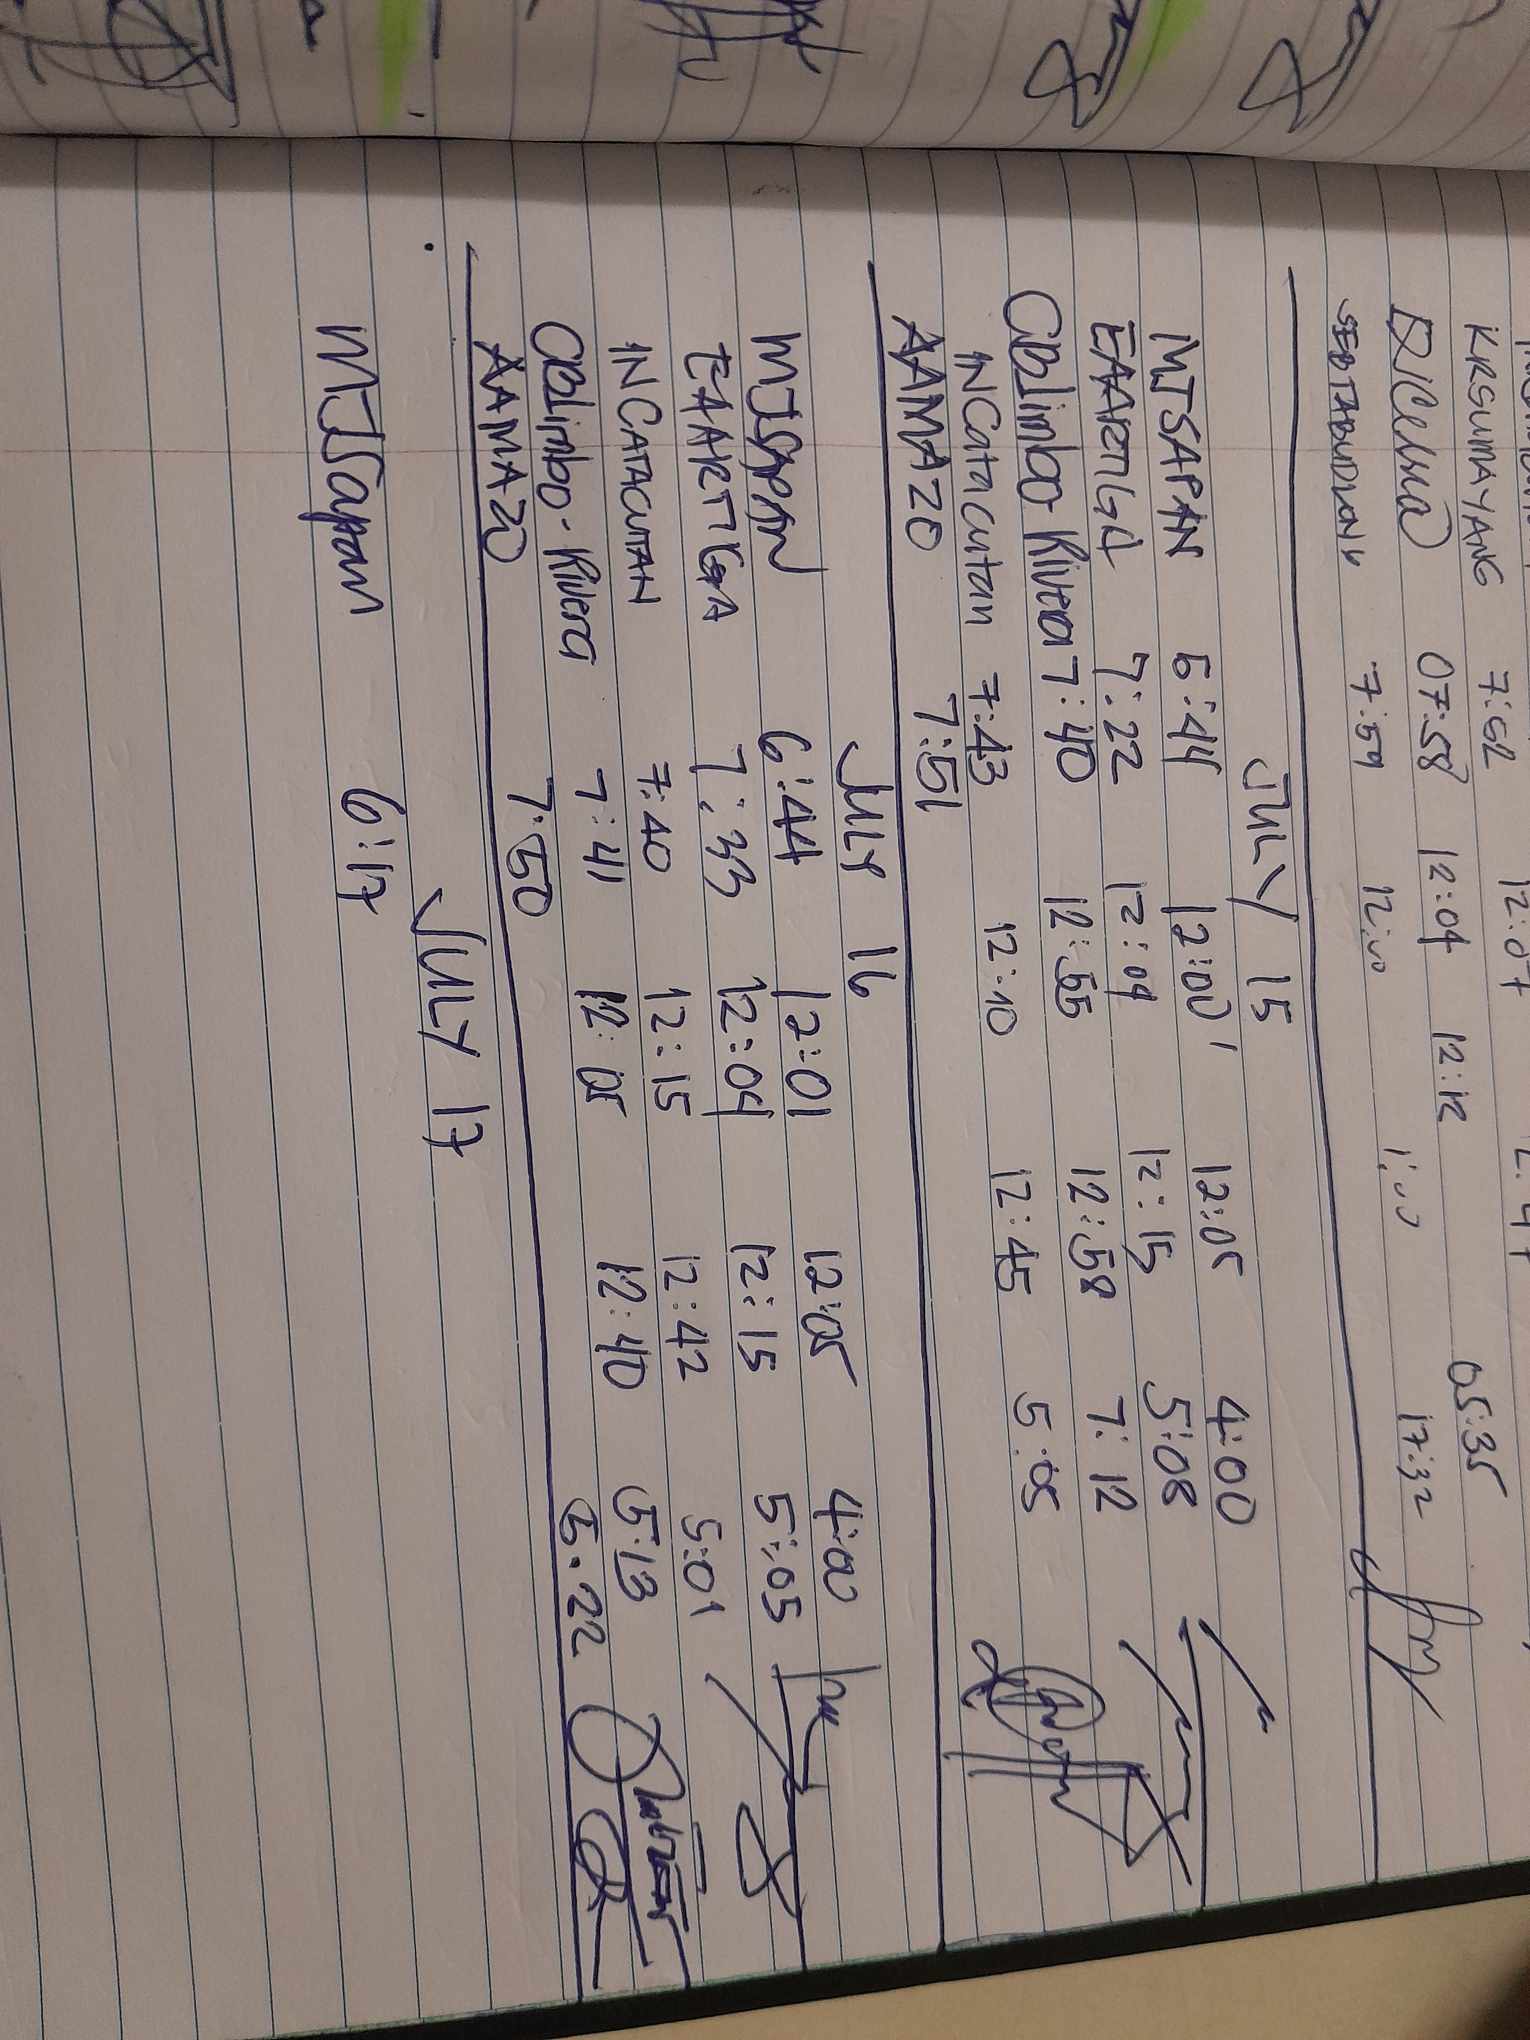 KRSUMAYANG 7:52 12:07
07:58 12:04 12:12 05:35
7:59 12:00 1:00 17:32
JULY 15
MJSAPAN 6:44 12:00 12:05 4:00
EAARTIGA 7:22 12:09 12:15 5:08
CBLimbo-Rivera 7:40 12:55 12:58 7:12
INCatacutan 7:43 12:10 12:45 5:05
AAMAZO 7:51
JULY 16
MJSAPAN 6:44 12:01 12:05 4:00
EAARTIGA 7:33 12:04 12:15 5:05
INCATACUTAN 7:40 12:15 12:42 5:01
CBLimbo-Rivera 7:41 12:05 12:40 5:13
AAMAZO 7:50 5:22
JULY 17
MJSapan 6:17